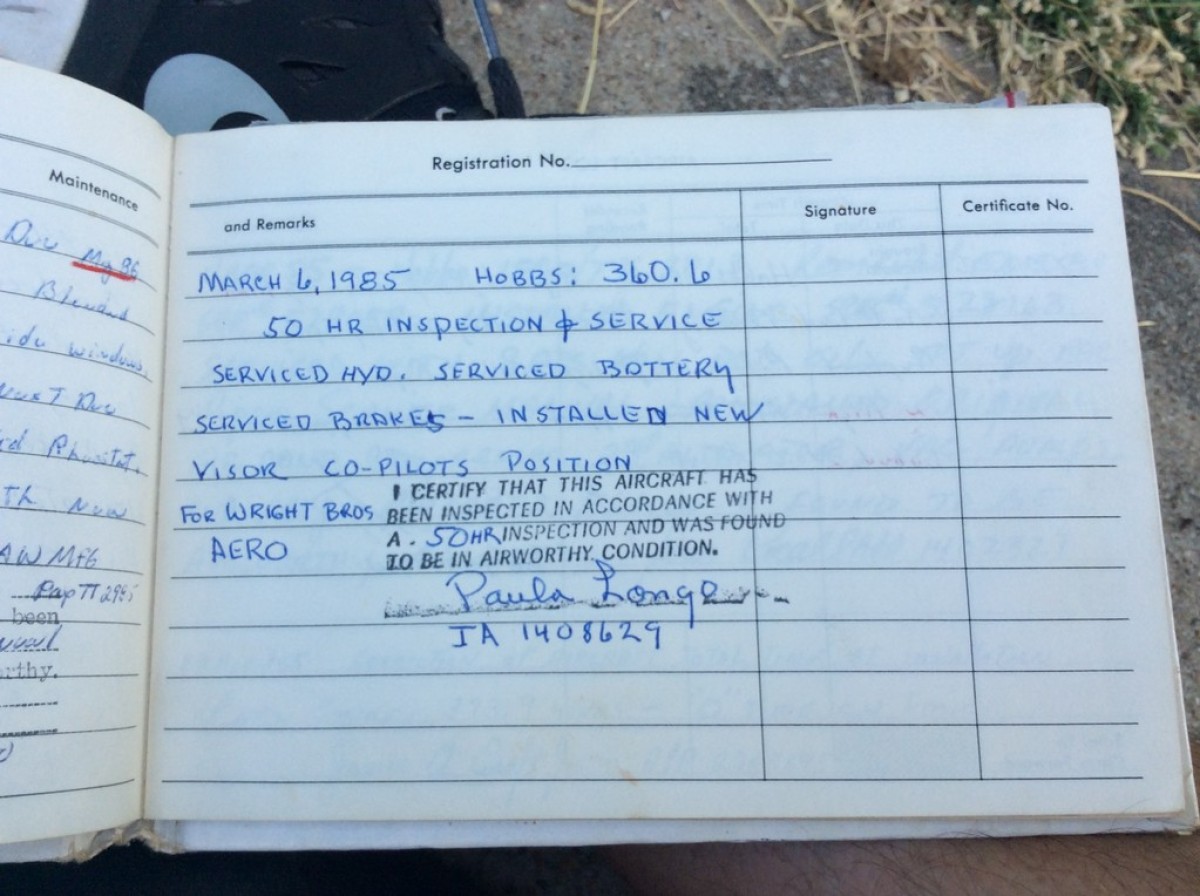 Maintenance
Due My 86
Blend
windows.
Due
AW MFG
TT 298
been
Registration No.
and Remarks
Signature
Certificate No.
MARCH 6, 1985 HOBBS: 360.6
50 HR INSPECTION & SERVICE
SERVICED HYD. SERVICED BOTTERY
SERVICED BRAKES - INSTALLED NEW
VISOR CO-PILOTS POSITION
FOR WRIGHT BROS
AERO
I CERTIFY THAT THIS AIRCRAFT HAS
BEEN INSPECTED IN ACCORDANCE WITH
A. 50HR INSPECTION AND WAS FOUND
TO BE IN AIRWORTHY CONDITION.
Paula Longo
IA 1408629